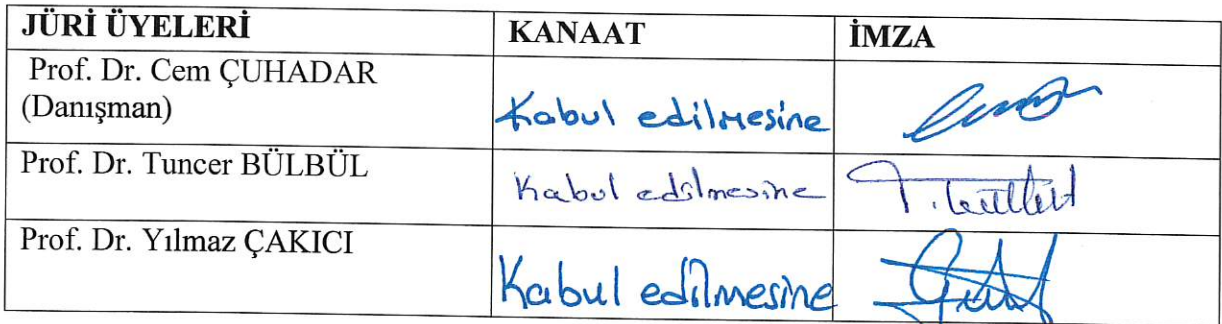 JÜRİ ÜYELERİ KANAAT İMZA
Prof. Dr. Cem ÇUHADAR
(Danışman) Kabul edilmesine
Prof. Dr. Tuncer BÜLBÜL Kabul edilmesine
Prof. Dr. Yılmaz ÇAKICI
Kabul edilmesine